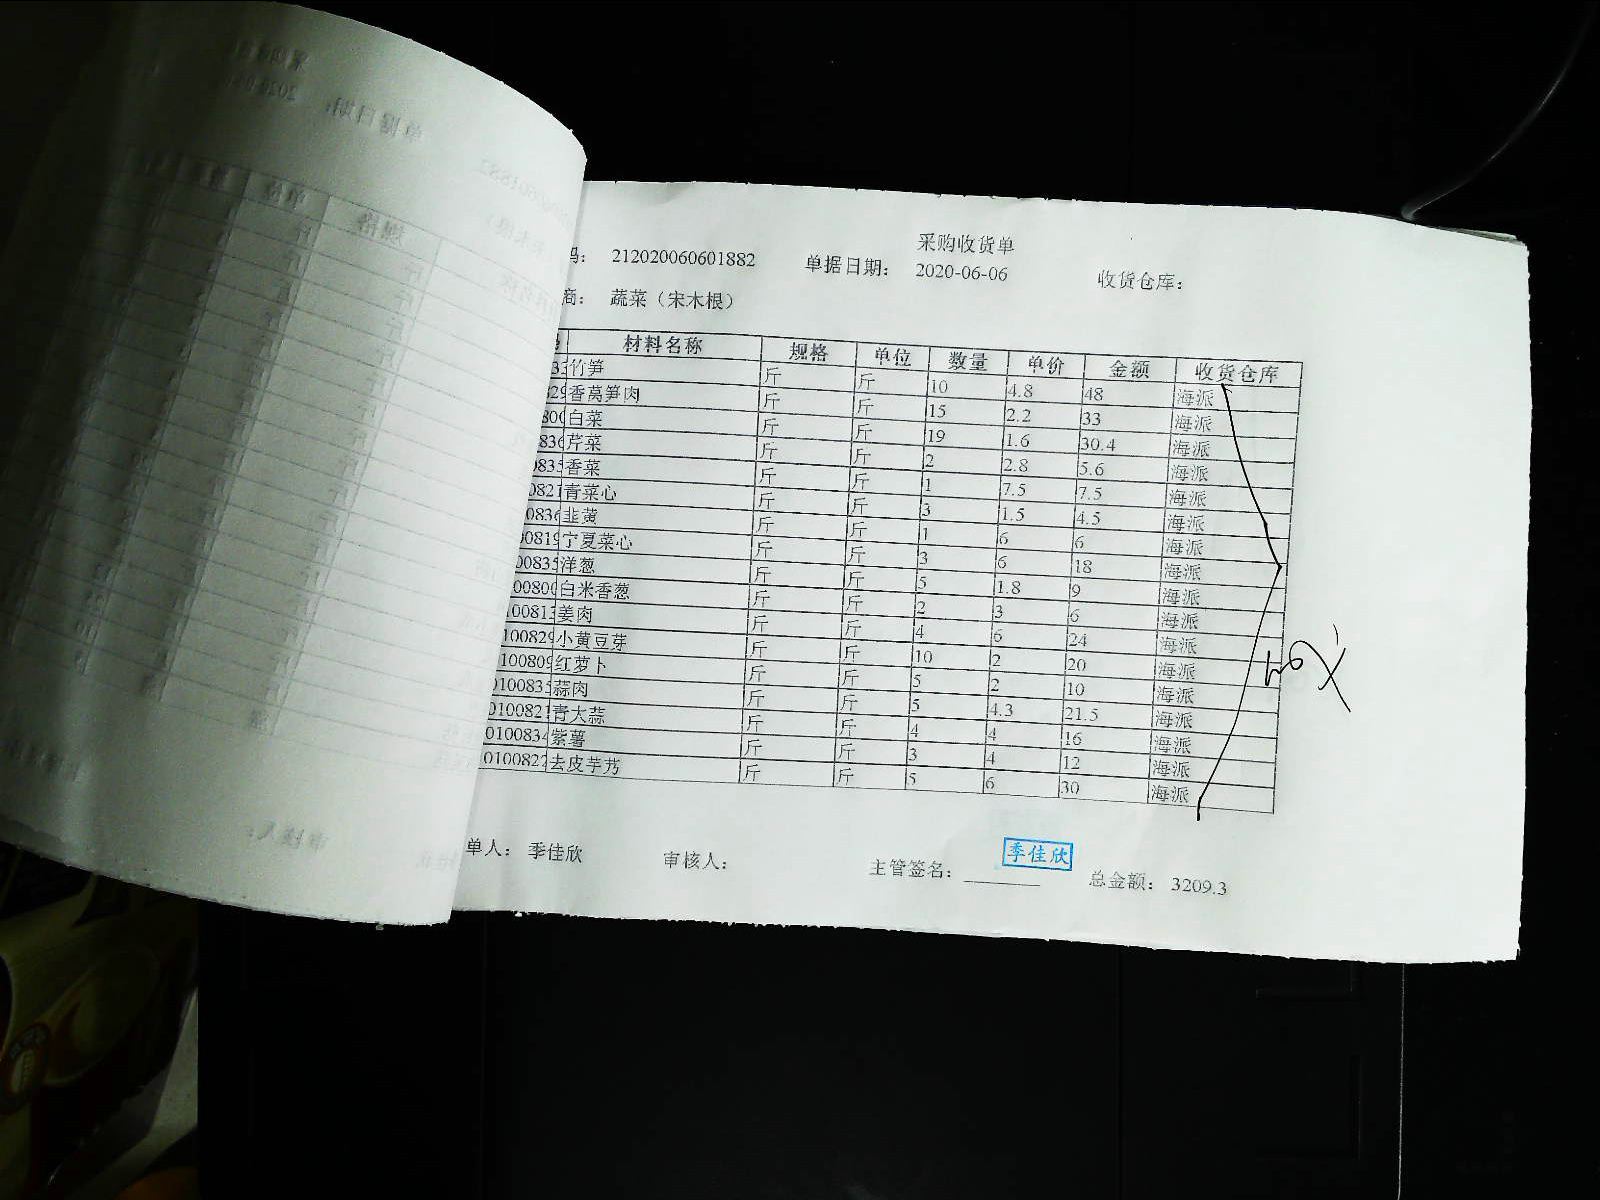 采购收货单
码： 212020060601882 单据日期： 2020-06-06 收货仓库：
商： 蔬菜（宋木根）
材料名称 规格 单位 数量 单价 金额 收货仓库
竹笋 斤 斤 10 4.8 48 海派
香莴笋肉 斤 斤 15 2.2 33 海派
白菜 斤 斤 19 1.6 30.4 海派
芹菜 斤 斤 2 2.8 5.6 海派
0835 香菜 斤 斤 1 7.5 7.5 海派
00821 青菜心 斤 斤 3 1.5 4.5 海派
韭黄 斤 斤 1 6 6 海派
00819 宁夏菜心 斤 斤 3 6 18 海派
00835 洋葱 斤 斤 5 1.8 9 海派
00800 白米香葱 斤 斤 2 3 6 海派
100813 姜肉 斤 斤 4 6 24 海派
100829 小黄豆芽 斤 斤 10 2 20 海派
100809 红萝卜 斤 斤 5 2 10 海派
0100835 蒜肉 斤 斤 5 4.3 21.5 海派
0100821 青大蒜 斤 斤 4 4 16 海派
0100834 紫薯 斤 斤 3 4 12 海派
0100822 去皮芋艿 斤 斤 5 6 30 海派
单人： 季佳欣 审核人： 主管签名： 季佳欣 总金额： 3209.3